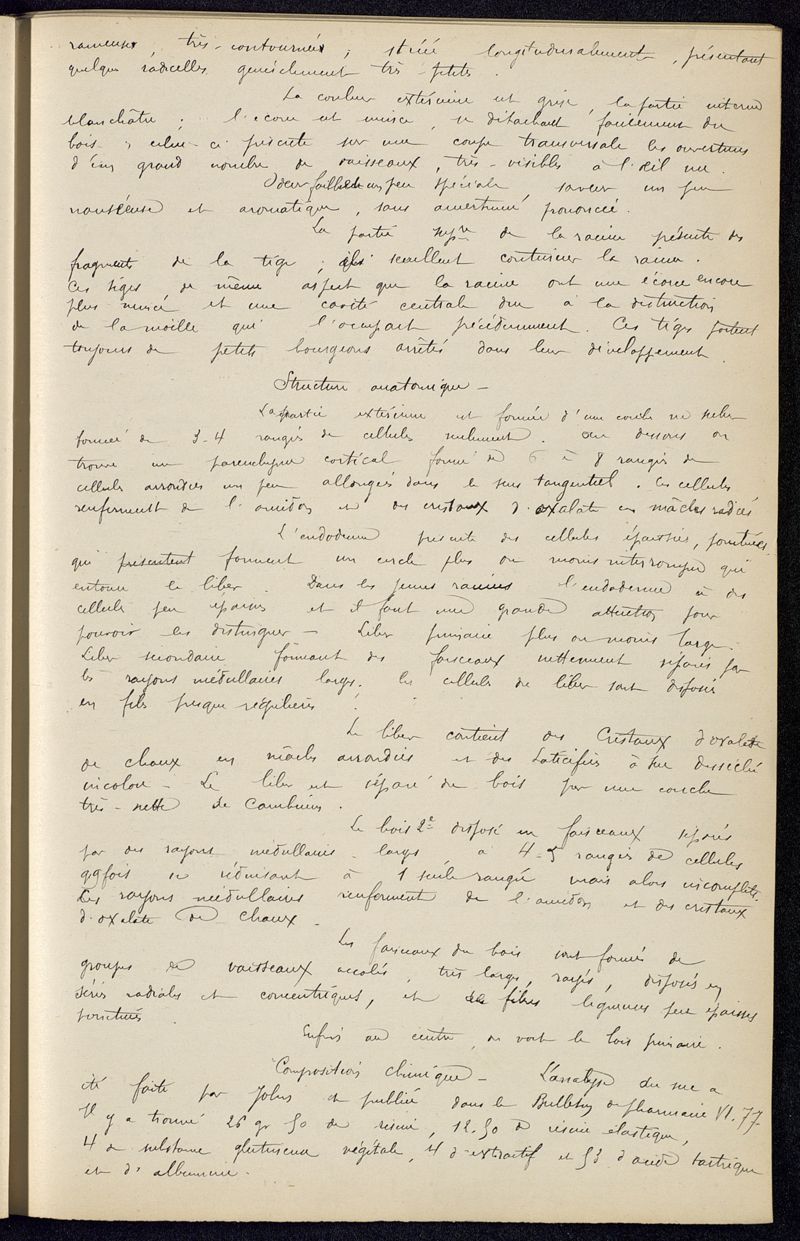 rameuse, très-contournées, striée longitudinalement, présentant
quelques radicelles généralement très petites.
La couleur extérieure est grise, la partie interne
blanchâtre ; l'écorce est mince, se détachant facilement du
bois ; celui-ci présente sur une coupe transversale les ouvertures
d'un grand nombre de vaisseaux, très-visibles à l'œil nu.
Odeur faible un peu spéciale saveur un peu
nauséeuse et aromatique, sans amertume prononcée.
La partie supre de la racine présente des
fragments de la tige ; semblent continuer la racine.
Ces tiges de même aspect que la racine ont une écorce encore
plus mince et une cavité centrale due à la destruction
de la moelle qui l'occupait précédemment. Ces tiges portent
toujours de petits bourgeons arrêtés dans leur développement.
Structure anatomique -
La partie extérieure est formée d'une couche
formée de 3-4 rangées de cellules seulement. au dessous on
trouve un parenchyme cortical formé de 6 à 8 rangées de
cellules arrondies un peu allongées dans le sens tangentiel. Ces cellules
renferment de l'amidon et des cristaux d'oxalate en mâcles radiées
L'endoderme présente des cellules épaissies, ponctuées
qui présentent forment un cercle plus ou moins interrompu qui
entoure le liber. Dans les jeunes racines l'endoderme a des
cellules peu épaisses et il faut une grande attention pour
pouvoir les distinguer - Liber primaire plus ou moins large.
Liber secondaire formant des faisceaux nettement séparés par
les rayons médullaires larges. les cellules du liber sont disposées
en files presque régulières.
Le liber contient des cristaux d'oxalate
de chaux en mâcles arrondies et des laticifères à suc desséché
incolore - Le liber est séparé du bois par une couche
très-nette de cambium.
Le bois 2re disposé en faisceaux séparés
par des rayons médullaires larges à 4-5 rangées de cellules
qqfois se réduisant à 1 seule rangée mais alors incomplète.
Les rayons médullaires renferment de l'amidon et des cristaux
d'oxalate de chaux.
Les faisceaux du bois sont formés de
groupes de vaisseaux accolés, très larges, rayés, disposés en
séries radiales et concentriques, et de fibres ligneuses peu épaisses
ponctuées.
Enfin au centre, on voit le bois primaire.
Composition chimique - L'analyse du suc a
été faite par John et publiée dans le Bulletin de pharmacie VI. 77.
Il y a trouvé 26 gr 50 de résine, 12.50 de résine élastique,
4 de substance glutineuse végétale, 4 d'extractif et 53 d'acide tartrique
et d'albumine.